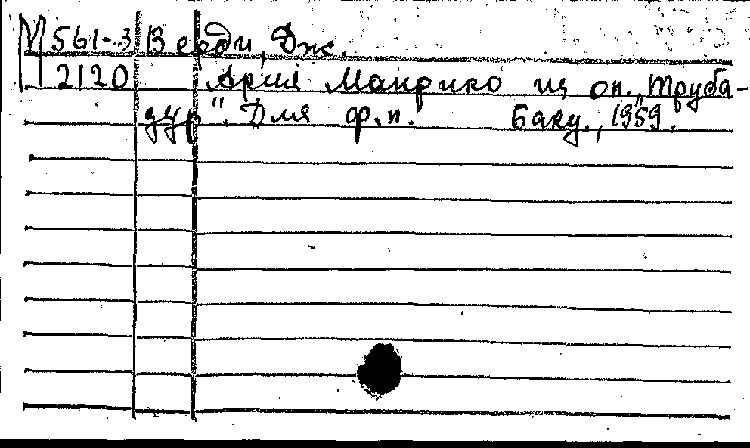 М 561-3 Верди, Дж.
2120 Ария Манрико из оп. „Труба-
дур". Для ф.п. Баку., 1959.